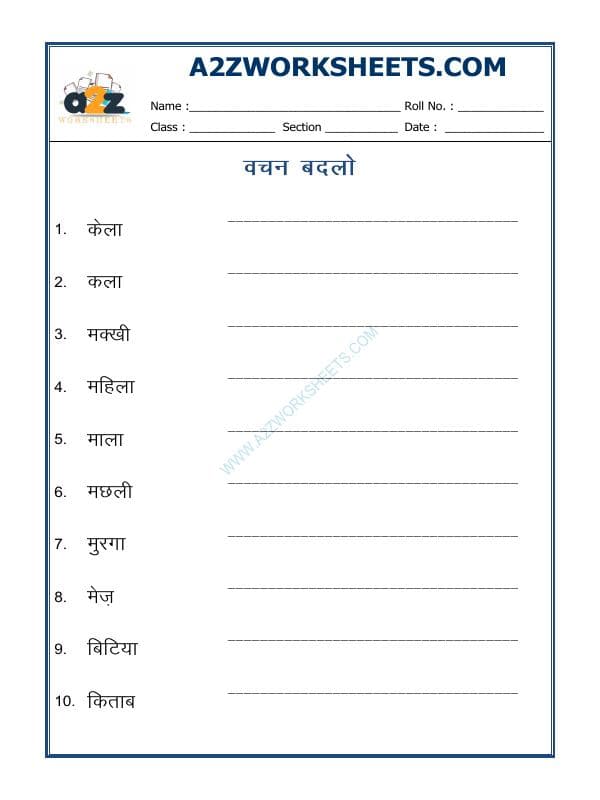 A2ZWORKSHEETS.COM
a2z
WORKSHEETS
Name :______________________________ Roll No. : ____________
Class : ____________ Section __________ Date : ______________
वचन बदलो
1. केला
2. कला
3. मक्खी
4. महिला
5. माला
6. मछली
7. मुरगा
8. मेज़
9. बिटिया
10. किताब
WWW.A2ZWORKSHEETS.COM